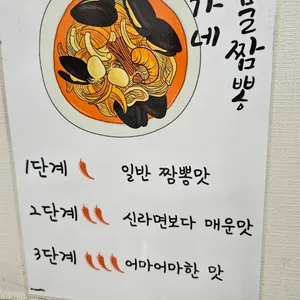 가네
물짬뽕
1단계 일반 짬뽕맛
2단계 신라면보다 매운맛
3단계 어마어마한 맛